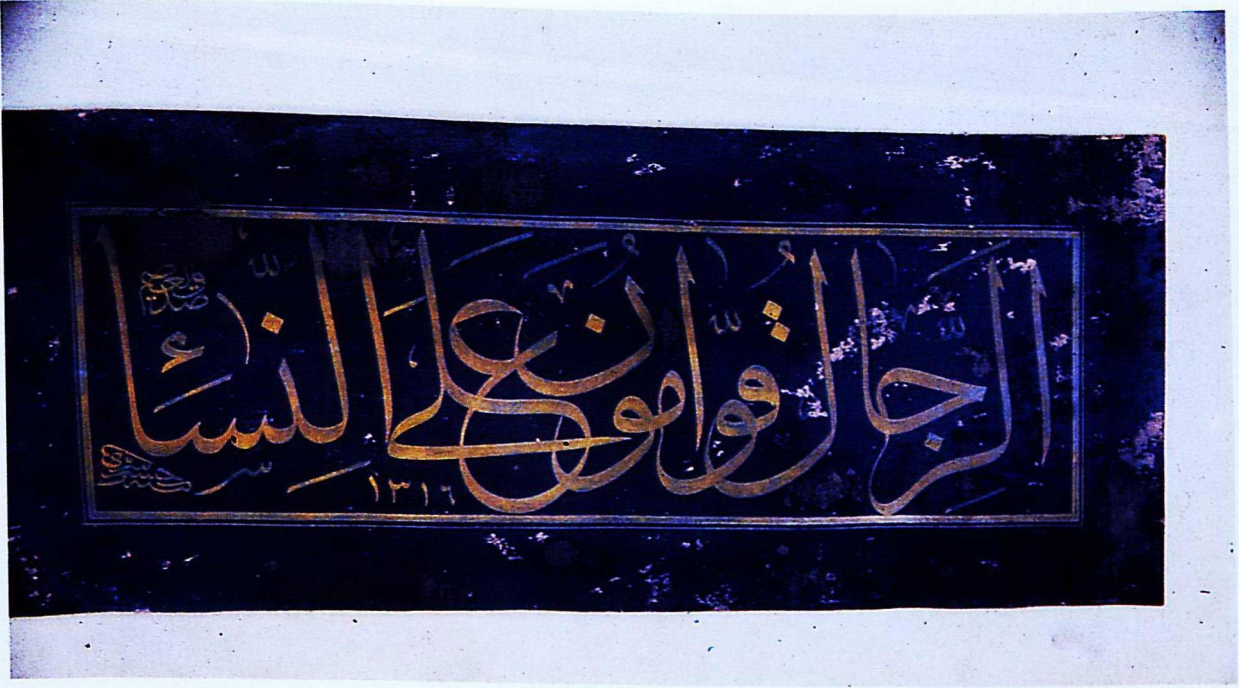 الرِّجَالُ قَوَّامُونَ عَلَى النِّسَاءِ
١٣١٦